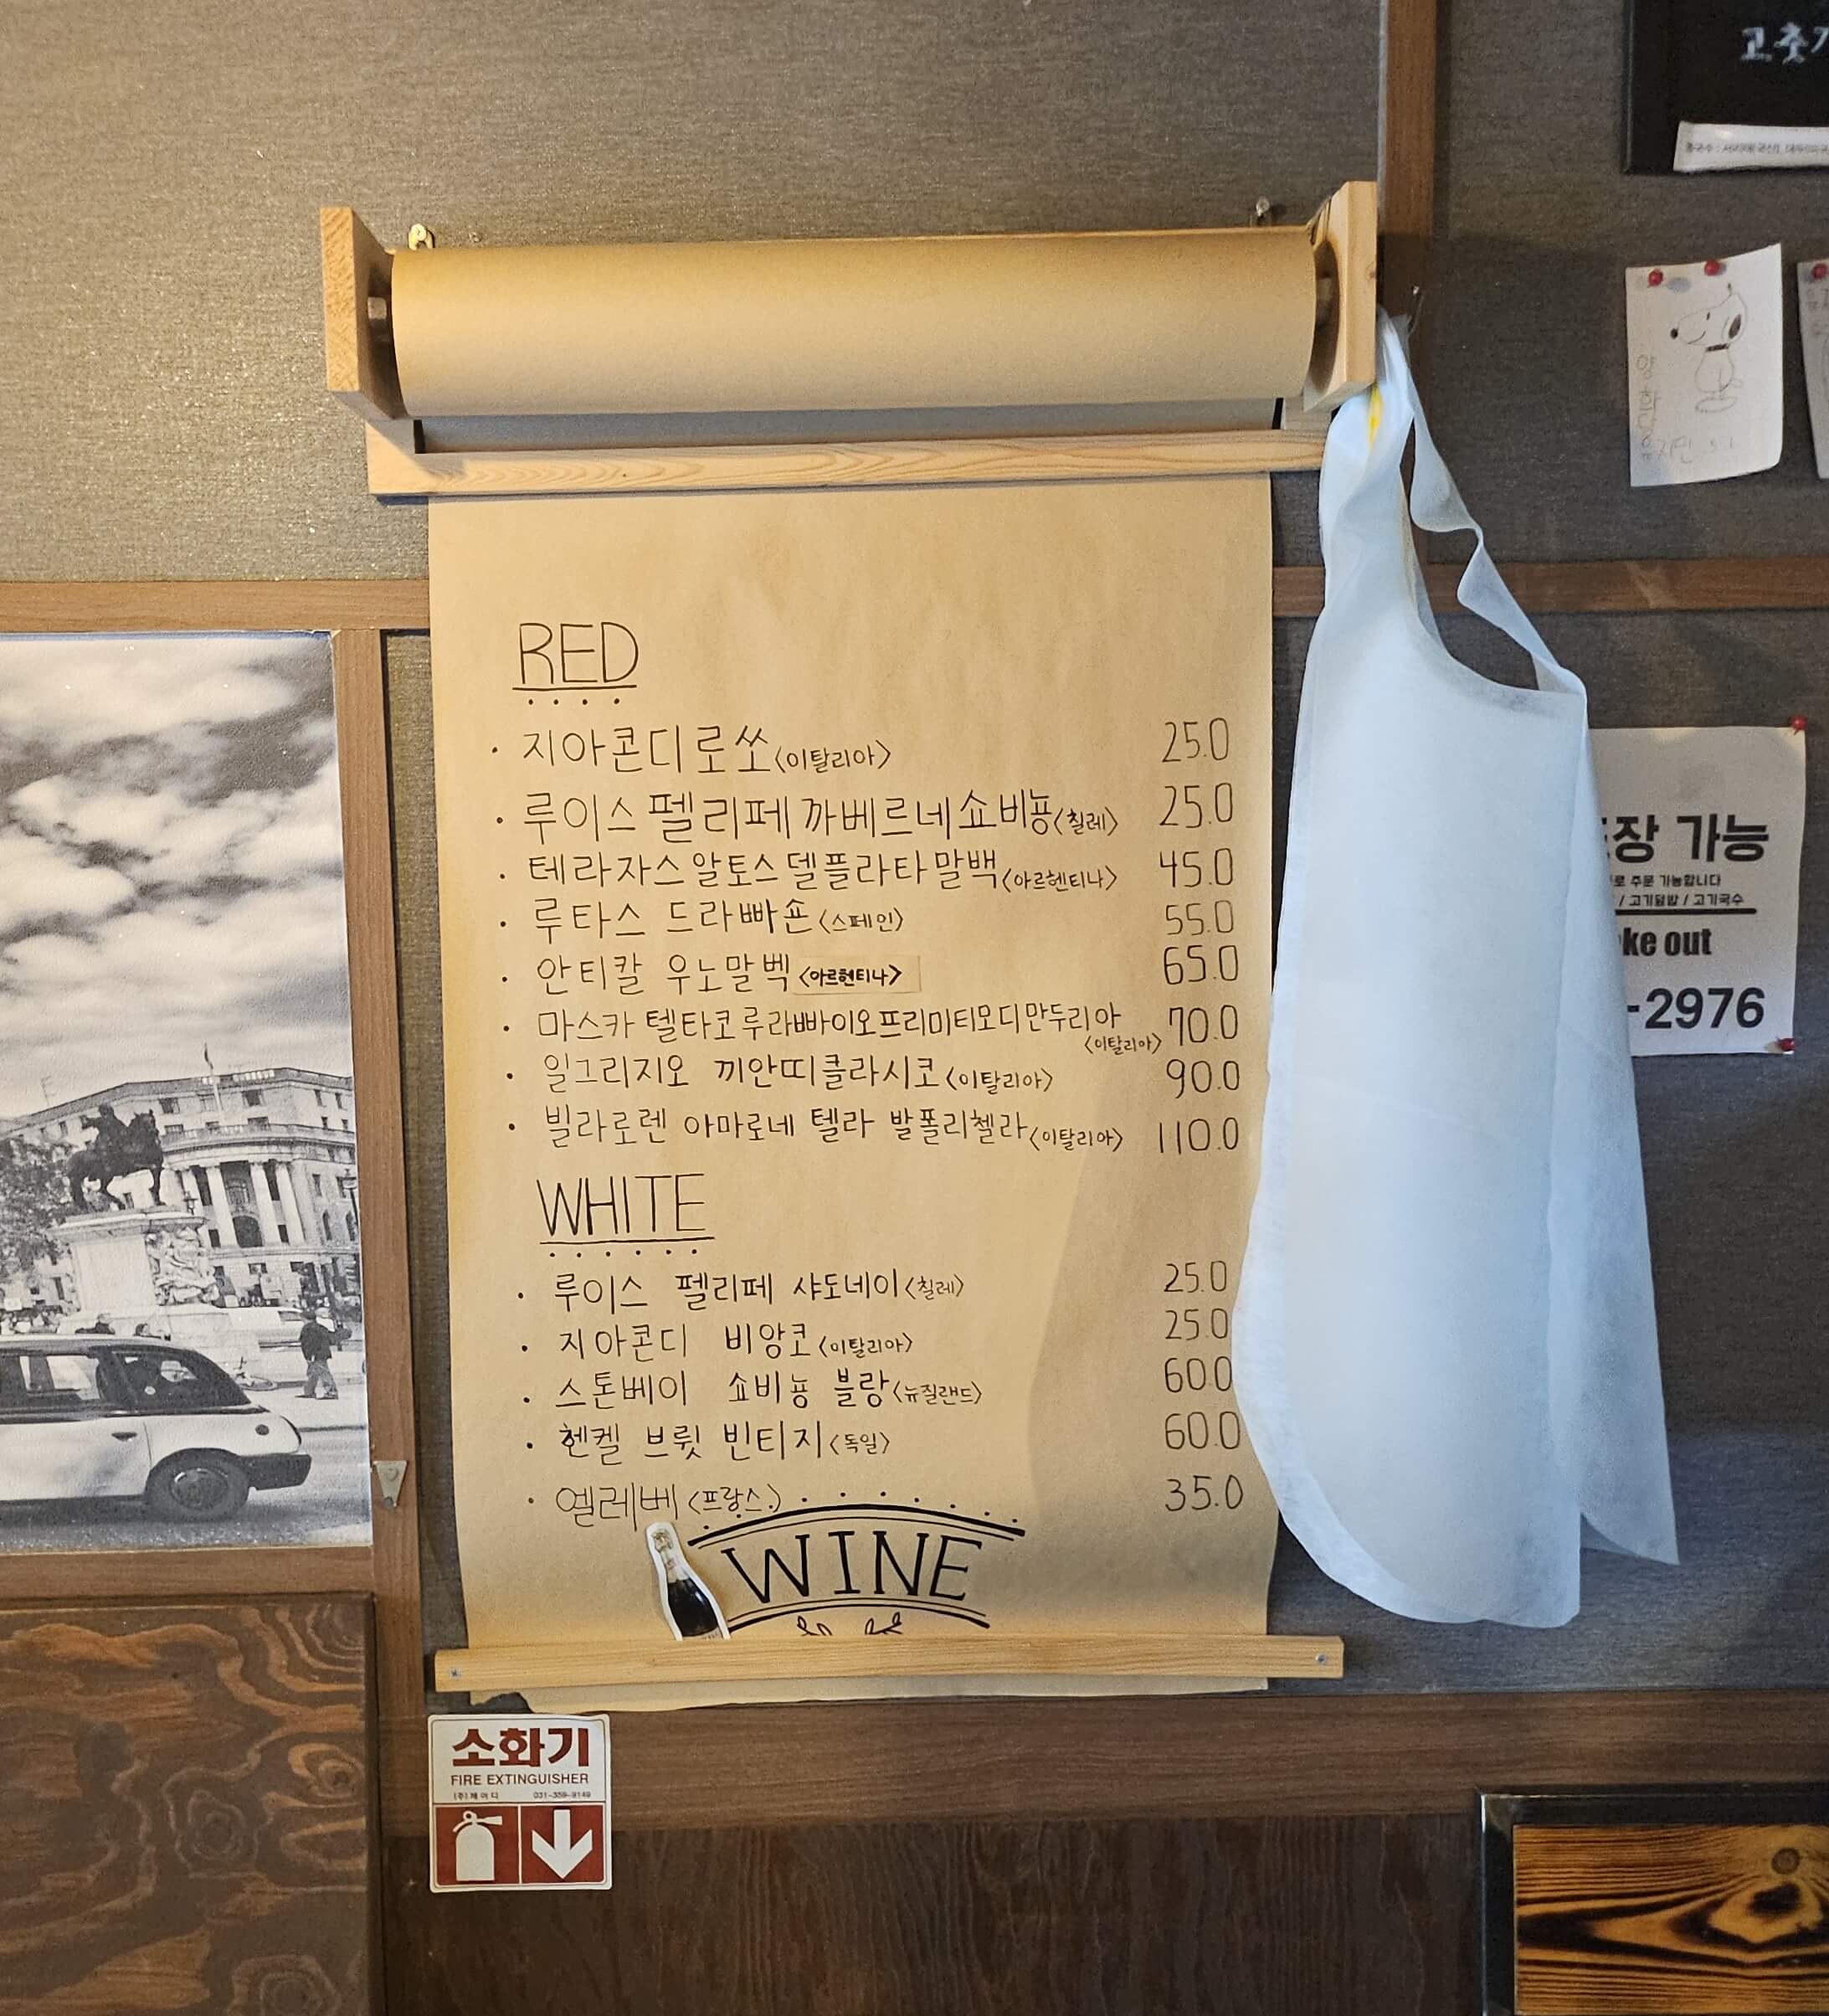 고춧
RED
· 지아콘디 로쏘 <이탈리아> 25.0
· 루이스 펠리페 까베르네 쇼비뇽 <칠레> 25.0
· 테라자스 알토스 델플라타 말백 <아르헨티나> 45.0
· 루타스 드라빠숀 <스페인> 55.0
· 안티칼 우노말벡 <아르헨티나> 65.0
· 마스카 텔타코 루라빠이오프리미티모디만두리아 <이탈리아> 70.0
· 일그리지오 끼안띠클라시코 <이탈리아> 90.0
· 빌라로렌 아마로네 텔라 발폴리첼라 <이탈리아> 110.0
WHITE
· 루이스 펠리페 샤도네이 <칠레> 25.0
· 지아콘디 비앙코 <이탈리아> 25.0
· 스톤베이 쇼비뇽 블랑 <뉴질랜드> 60.0
· 헨켈 브륏 빈티지 <독일> 60.0
· 옐레베 <프랑스> 35.0
WINE
장 가능
로 주문 가능합니다
/ 고기덮밥 / 고기국수
ke out
-2976
소화기
FIRE EXTINGUISHER
031-359-9149